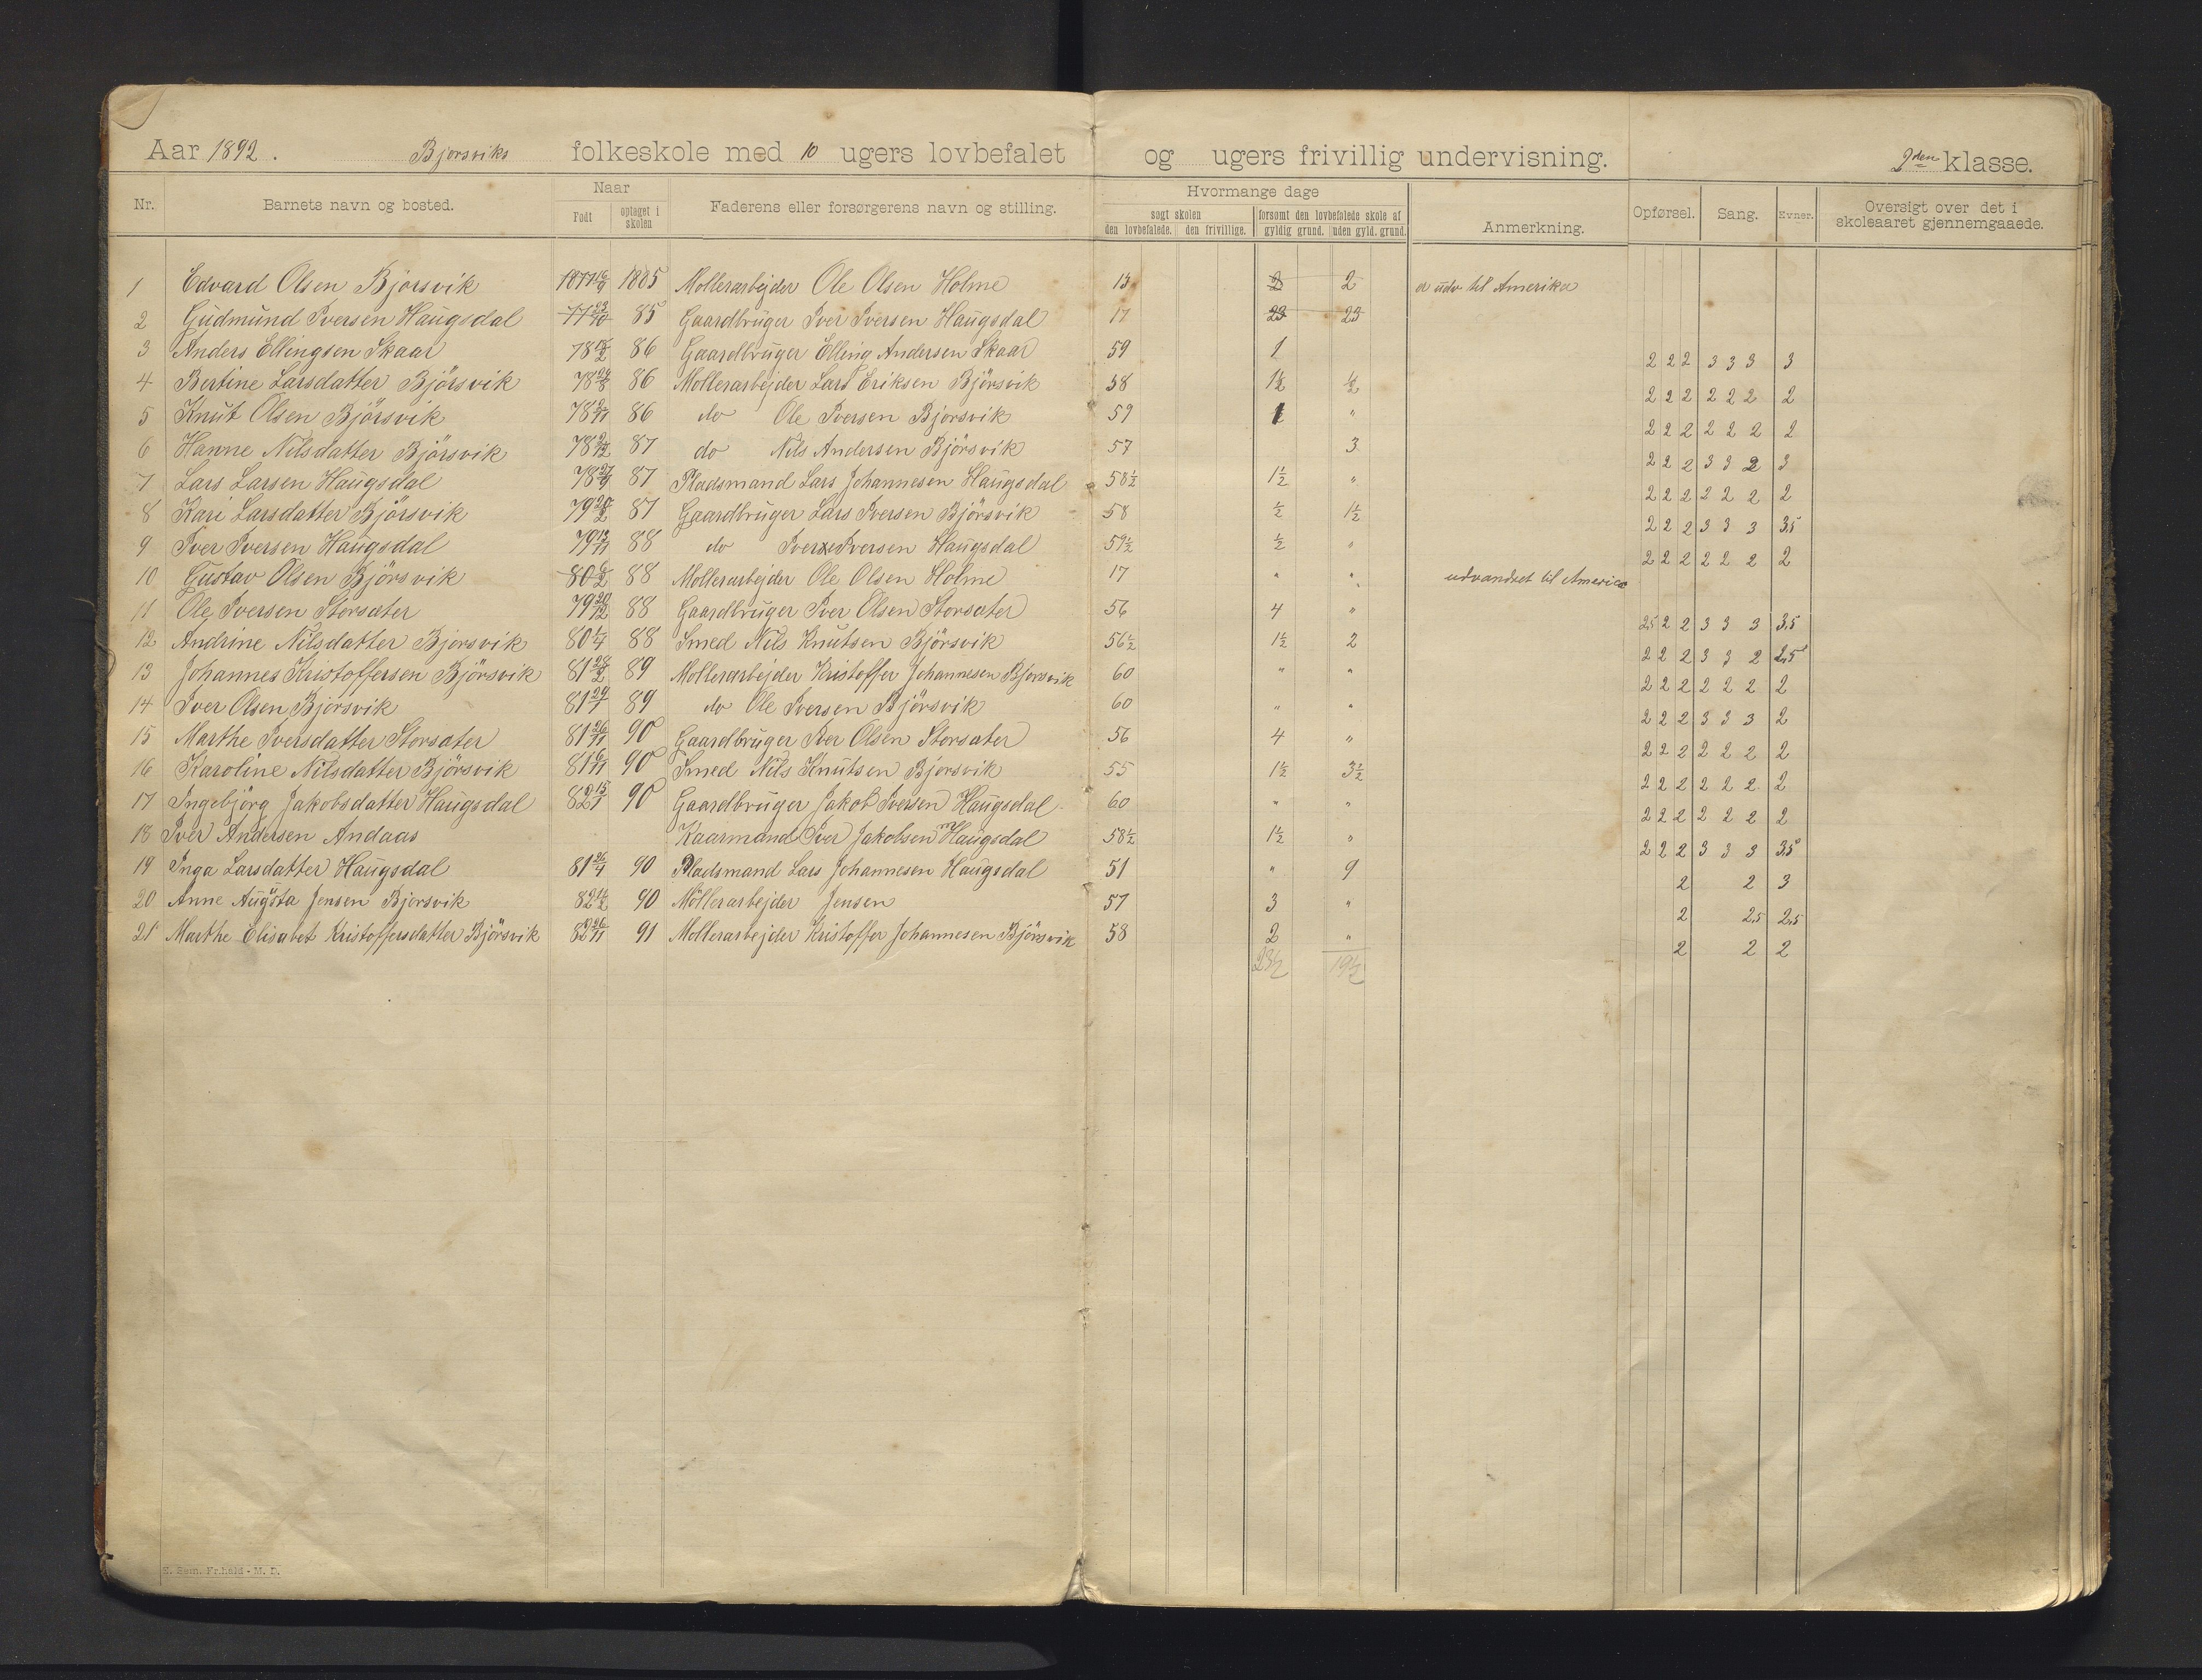 Aar 1892. Bjorsviks folkeskole med 10 ugers lovbefalet og ugers frivillig undervisning. 2den klasse.
Nr. Barnets navn og bosted. Naar Født optaget i skolen Faderens eller forsørgerens navn og stilling. Hvormange dage søgt skolen den lovbefalede. den frivillige. forsømt den lovbefalede skole af gyldig grund. uden gyld. grund. Anmerkning. Opførsel. Sang. Evner. Oversigt over det i skoleaaret gjennemgaaede.
1 Edvard Olsen Björsvik 1877 1885 Mollerarbejder Ole Olsen Holme 13 2 2 er udv til Amerika
2 Gudmund Iversen Haugsdal 77 23/10 85 Gaardbruger Iver Iversen Haugsdal 17 23 23
3 Anders Ellingsen Skaar 78 86 Gaardbruger Elling Andersen Skaar 59 1 2 2 2 3 3 3 3
4 Bertine Larsdatter Björsvik 78 86 Mollerarbejder Lars Eriksen Björsvik 58 1½ ½ 2 2 2 2 2 2 2
5 Knut Olsen Björsvik 78 2/11 86 do Ole Iversen Bjorsvik 59 1 " 2 2 2 2 2 2 2
6 Hanne Nilsdatter Björsvik 78 2/12 87 do Nils Andersen Björsvik 57 3 2 2 2 3 3 2 3
7 Lars Larsen Haugsdal 78 87 Pladsmand Lars Johannesen Haugsdal 58½ 1½ " 2 2 2 2 2 2 2
8 Kari Larsdatter Björsvik 79 20/2 87 Gaardbruger Lars Iversen Björsvik 58 ½ 1½ 2 2 2 3 3 3 3,5
9 Iver Iversen Haugsdal 79 88 do Iver Iversen Haugsdal 59½ ½ " 2 2 2 2 2 2 2
10 Gustav Olsen Björsvik 80 6/2 88 Mollerarbejder Ole Olsen Holme 17 " " udvandret til America
11 Ole Iversen Storsæter 79 20/12 88 Gaardbruger Iver Olsen Storsæter 56 4 " 2,5 2 2 3 3 3 3,5
12 Andrine Nilsdatter Bjorsvik 80 88 Smed Nils Knutsen Björsvik 56½ 1½ 2 2 2 2 3 3 2 2,5
13 Johannes Kristoffersen Björsvik 81 28/2 89 Mollerarbejder Kristoffer Johannesen Bjorsvik 60 " " 2 2 2 2 2 2 2
14 Iver Olsen Bjorsvik 81 29/7 89 do Ole Iversen Björsvik 60 " " 2 2 2 3 3 3 2
15 Marthe Iversdatter Storsæter 81 26/11 90 Gaardbruger Iver Olsen Storsæter 56 4 " 2 2 2 2 2 2 2
16 Karoline Nilsdatter Björsvik 81 6/11 90 Smed Nils Knutsen Bjorsvik 55 1½ 3½ 2 2 2 2 2 2 2
17 Ingebjörg Jakobsdatter Haugsdal 82 15/1 90 Gaardbruger Jakob Iversen Haugsdal 60 " " 2 2 2 2 2 2 2
18 Iver Andersen Andaas Kaarmand Iver Jakobsen Haugsdal 58½ 1½ " 2 2 2 3 3 3 3,5
19 Inga Larsdatter Haugsdal 81 90 Pladsmand Lars Johannesen Haugsdal 51 " 9 2 2 3
20 Anne Augusta Jensen Bjorsvik 82 90 Möllerarbejder Jensen 57 3 " 2 2,5 2,5
21 Marthe Elisabet Kristoffersdatter Björsvik 82 26/11 91 Mollerarbejder Kristoffer Johannesen Björsvik 58 2 " 2 2 2
23½ 19½